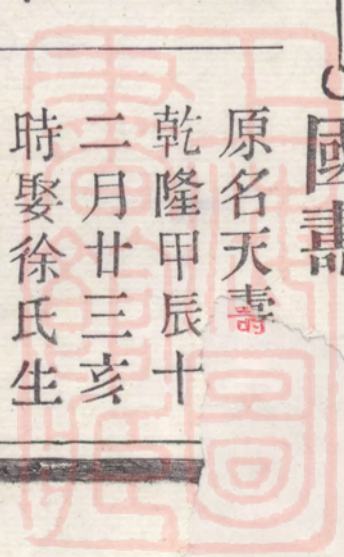 國壽
原名天壽
乾隆甲辰十
二月廿三亥
時娶徐氏生